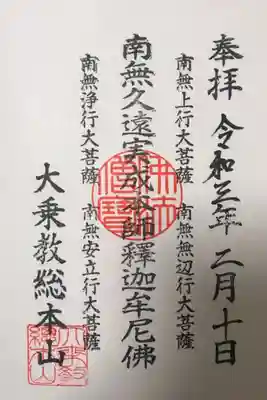 奉拝 令和三年 二月十日
南無上行大菩薩 南無無辺行大菩薩
南無久遠実成本師釋迦牟尼佛
南無浄行大菩薩 南無安立行大菩薩
大乗教総本山